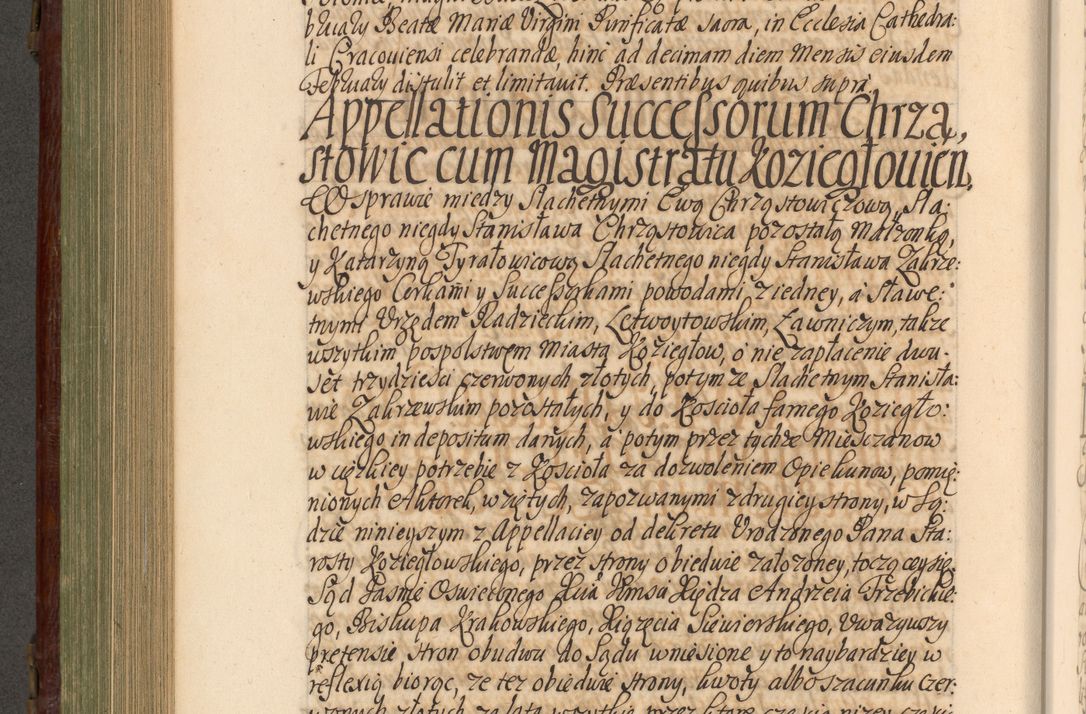 bruary Beatæ Mariæ Virgini Purificatæ sacra, in Ecclesia Cathedra:
li Cracoviensi celebrandæ, hinc ad decimam diem Mensis eiusdem
February distulit et limitauit. Præsentibus quibus supra.
Appellationis Successorum Chrzą,
stowic cum Magistratu Koziegłouien.
W sprawie między Slachetnymi Ewą Chrząstowiczową, Sla:
chetnego niegdy Stanisława Chrząstowica pozostałą Małżonką,
y Katarzyną Tyrałowicową Slachetnego niegdy Stanisława Zakrze:
wskiego Corkami y Successorkami powodami z iedney, a Sławe:
tnymi Vrzędem Radzieckim, Letwoytowskim, Ławniczym, także
wszytkim pospolstwem Miasta Koziegłow, o nie zapłacenie dwu:
set trzydzieści czerwonych złotych, potym ze Slachetnym Stanisła:
wie Zakrzewskim pozostałych, y do Kościoła farnego Koziegło:
wskiego in depositum danych, a potym przez tychże Miesczanow
w ciężkiey potrzebie z Kościoła za dozwoleniem Opiekunow, pomię:
nionych Aktorek, wziętych, zapozwanymi z drugiey strony, w Są:
dzie ninieyszym z Appellaciey od dekretu Vrodzonego Pana Sta:
rosty Koziegłowskiego, przez strony obiedwie założoney, toczącey się.
Sąd Jaśnie Oswieconego Xcia Jmsci Xiędza Andrzeia Trzebickie:
go, Biskupa Krakowskiego, Xiążęcia Siewierskiego, Vważywszy
pretensie stron obudwu do Sądu wniesione y to naybardziey w
reflexią biorąc, że też obiedwie strony, kwoty albo szacunku czer:
wonych złotych za lata wszytkie przez ktore